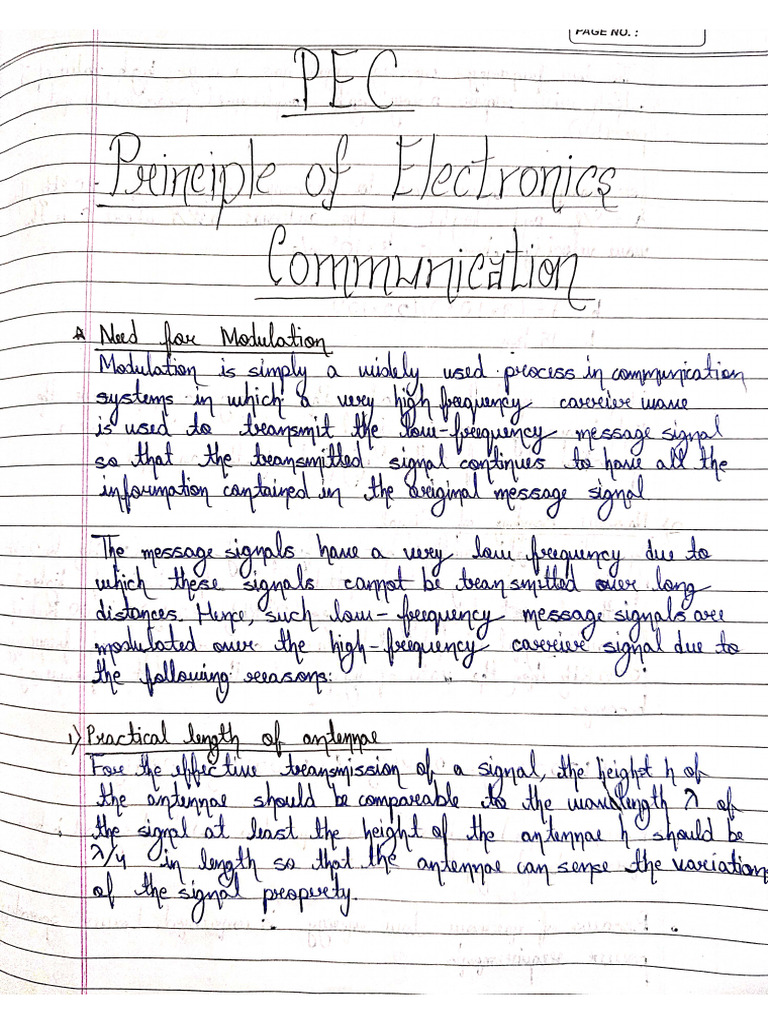 PAGE NO. :
PEC
Principle of Electronics
Communication
Need for Modulation
Modulation is simply a widely used process in communication
systems in which a very high frequency carrier wave
is used to transmit the low-frequency message signal
so that the transmitted signal continues to have all the
information contained in the original message signal
The message signals have a very low frequency due to
which these signals cannot be transmitted over long
distances. Hence, such low-frequency message signals are
modulated over the high-frequency carrier signal due to
the following reasons:
1) Practical length of antennae
For the effective transmission of a signal, the height h of
the antennae should be comparable to the wavelength λ of
the signal at least the height of the antennae h should be
λ/4 in length so that the antennae can sense the variations
of the signal property.